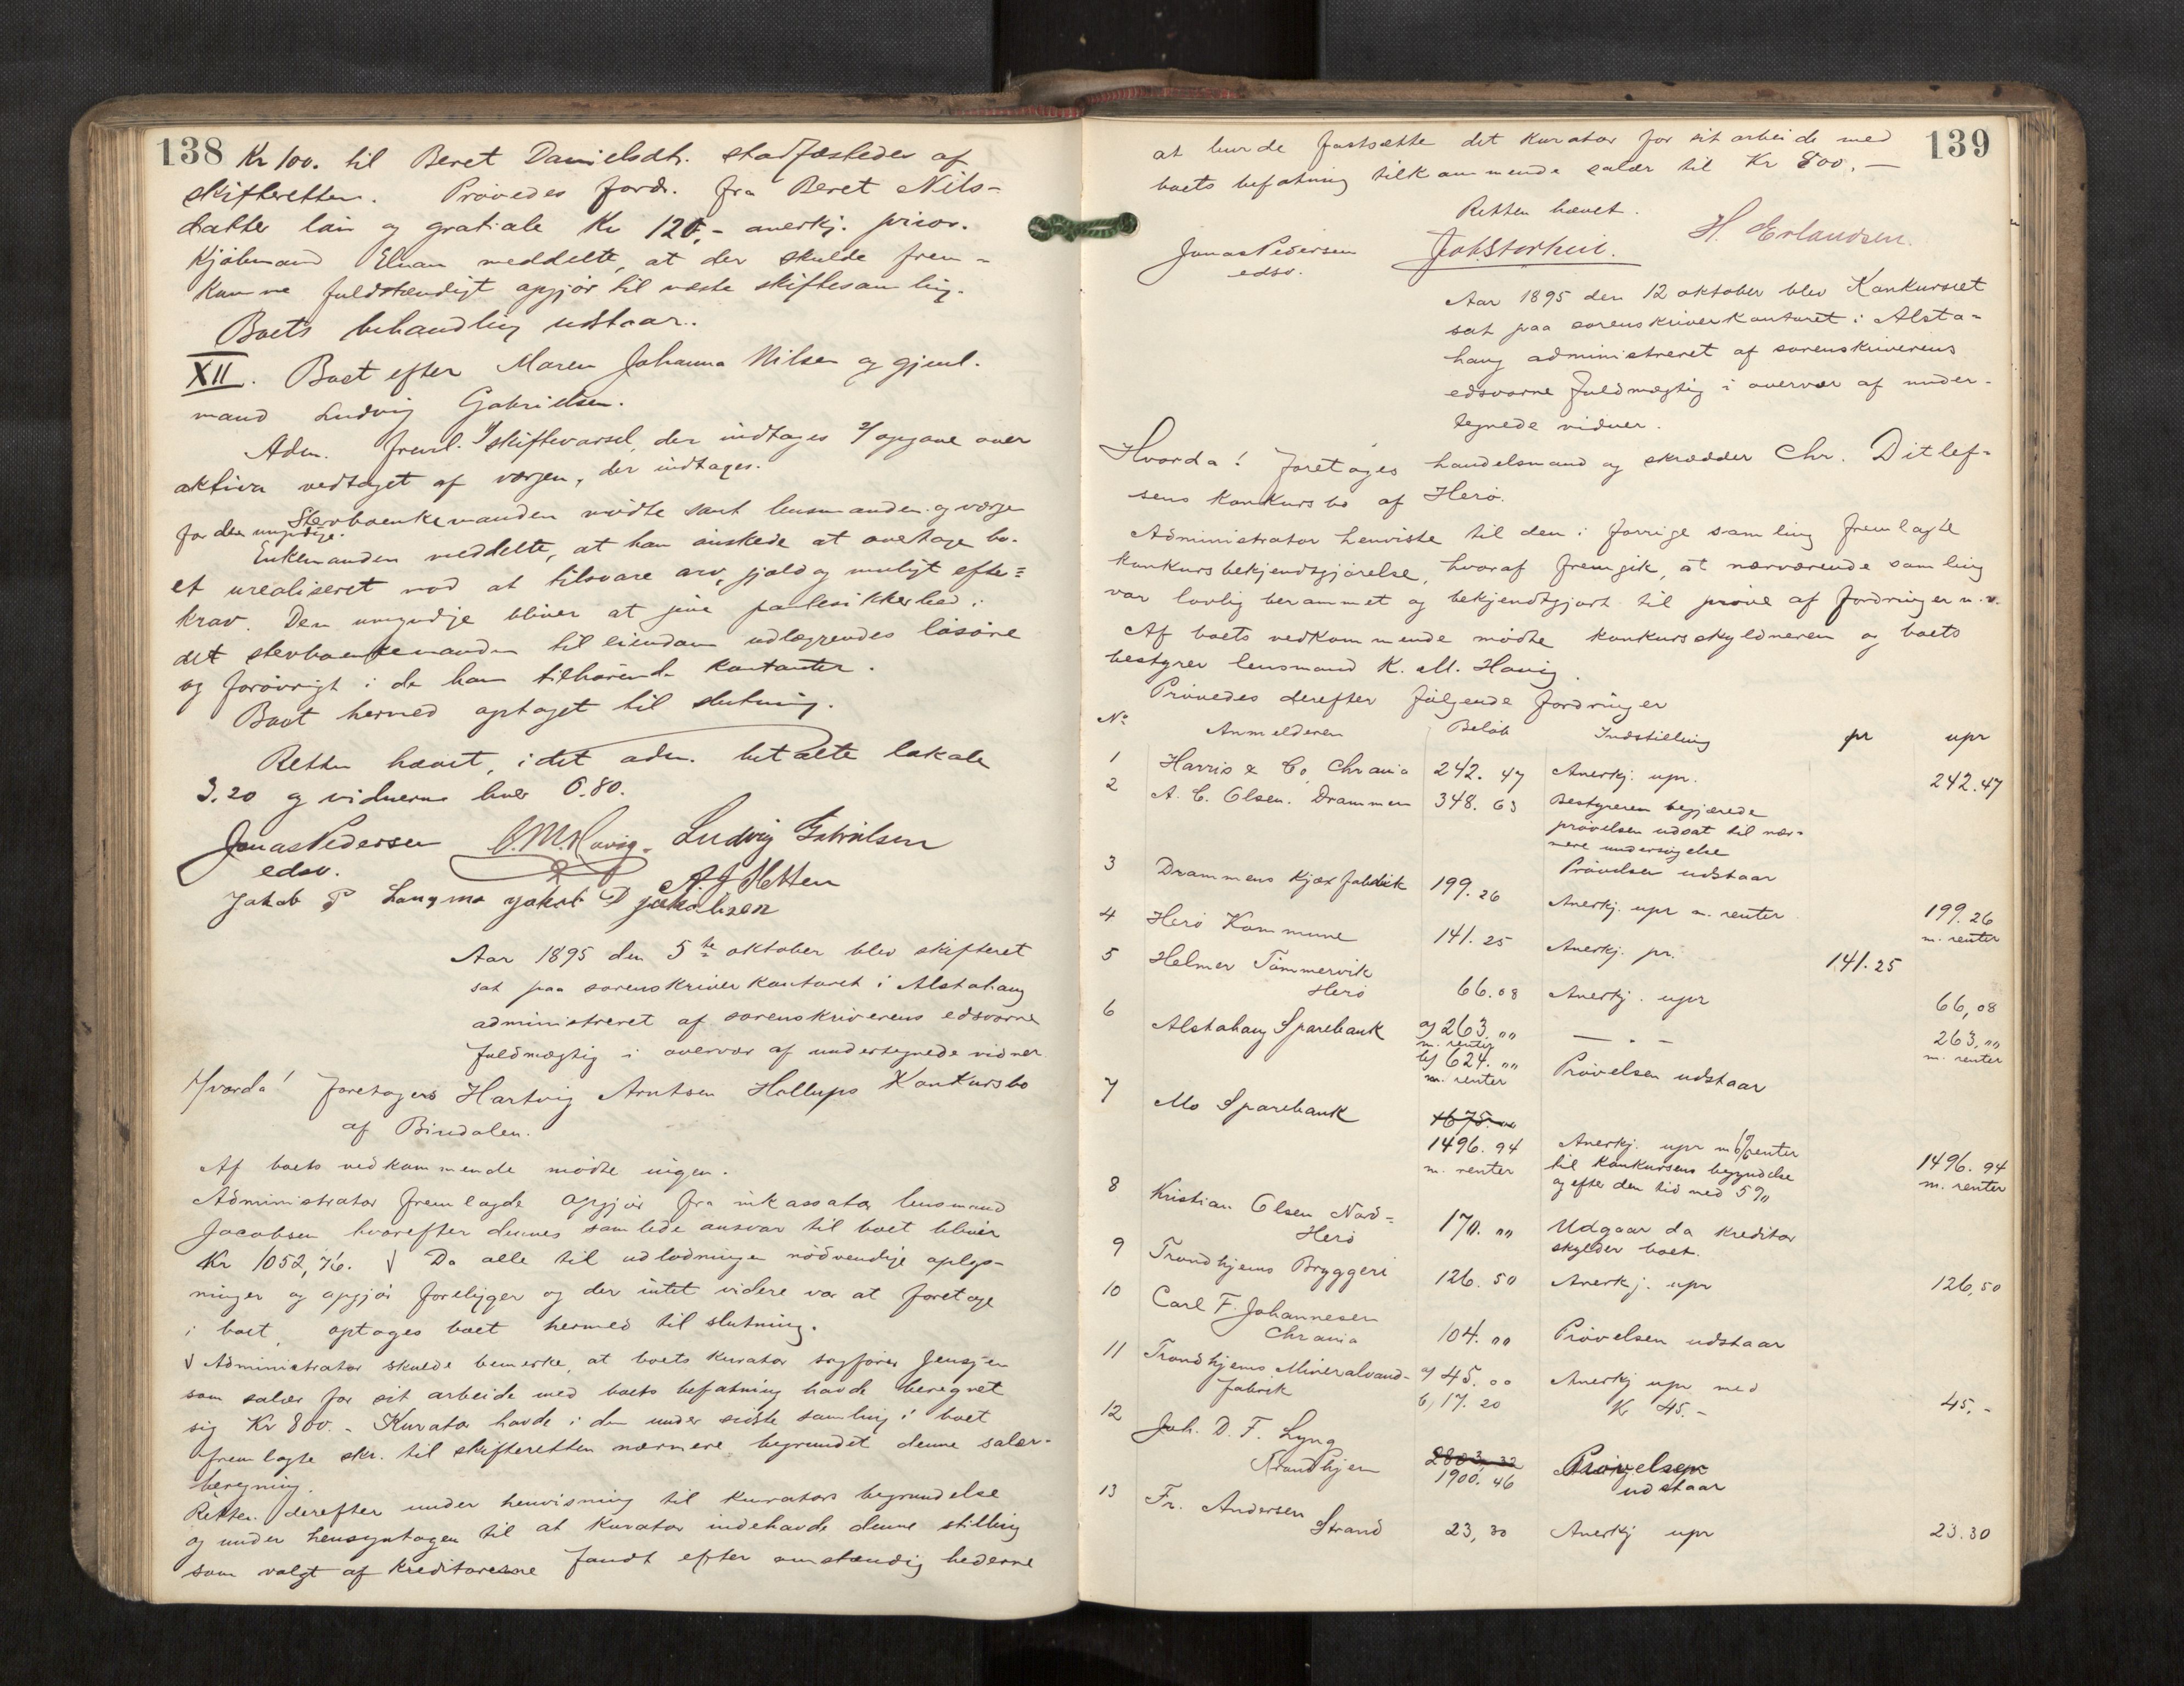 138
Kr 100. til Beret Danielsdtr. stadfæstedes af
skifteretten. Prövedes fordr. fra Beret Nils-
datter lön og gratiale Kr 120,- anerkj. prior.
Kjöbmand meddelte, at der skulde frem-
komme fuldstændigt opgjör til næste skiftesamling.
Boets behandling udstaar.
XII. Boet efter Maren Johanna Nilsen og gjenl.
mand Ludvig Gabrielsen.
Adm. freml. 1/ skiftevarsel, der indtages 2/ opgave over
aktiva vedtaget af værgen, der indtages.
Stervboenkemanden mödte samt lensmanden og værge
for den umyndige.
Enkemanden meddelte, at han önskede at overtage bo-
et urealiseret mod at tilsvare arv, gjæld og muligt efter-
krav. Den umyndige bliver at give pantesikkerhed i
det stervboenkemanden til eiendom udlæggendes lösöre
og forövrigt i de ham tilhörende kontanter.
Boet hermed optaget til slutning.
Retten hævet, idet adm. betalte lokale
3.20 og vidnerne hver 0.80.
Jonas Pedersen
edsv.
Havig. Ludvig Gabrielsen
Jakob P Langmo Jakob P Jakobsen
Aar 1895 den 5te oktober blev skifteret
sat paa sorenskriverkontoret i Alstahaug
administreret af sorenskriverens edsvorne
fuldmægtig i overvær af undertegnede vidner
Hvorda! foretoges Hartvig Arntsen Hollups Konkursbo
af Bindalen.
Af boets vedkommende mödte ingen.
Administrator fremlagde opgjör fra inkassator lensmand
Jacobsen hvorefter dennes samlede ansvar til boet bliver
Kr 1052,76. √ Da alle til udlodningen nödvendige oplys-
ninger og opgjör foreligger og der intet videre var at foretage
i boet, optages boet hermed til slutning.
√ Administrator skulde bemerke, at boets kurator sagförer
som salær for sit arbeide med boets befatning havde beregnet
sig Kr 800.- Kurator havde i den under sidste samling i boet
fremlagte skr. til skifteretten nærmere begrundet denne salær-
beregning.
Retten derefter under henvisning til kurators begrundelse
og under hensyntagen til at Kurator indehavde denne stilling
som valgt af kreditorerne fandt efter omstændighederne
139
at burde fastsætte det kurator for sit arbeide med
boets befatning tilkommende salær til Kr 800,-
Retten hævet.
Jonas Pedersen
edsv.
H. Erlandsen.
Aar 1895 den 12 oktober blev Konkursret
sat paa sorenskriverkontoret i Alsta-
haug administreret af sorenskriverens
edsvorne fuldmægtig i overvær af under-
tegnede vidner.
Hvorda! foretoges handelsmand og skrædder Chr. Ditlef-
sens konkursbo af Herö.
Administrator henviste til den i forrige samling fremlagte
konkursbekjendtgjörelse, hvoraf fremgik, at nærværende samling
var lovlig berammet og bekjendtgjort til pröve af fordringer m.v.
Af boets vedkommende mödte konkursskyldneren og boets
bestyrer lensmand K. M. Havig.
Prövedes derefter fölgende fordringer
No Anmelderen Belöb Indstilling pr upr
1 Harris & Co, Chrania 242.47 Anerkj. upr. 242.47
2 A. C. Olsen. Drammen 348.63 Bestyreren begjærede
prövelsen udsat til nær-
mere undersögelse
Prövelsen udstaar
3 Drammens Kjæxfabrik 199.26 Anerkj. upr m. renter 199.26
m. renter
4 Herö Kommune 141.25 Anerkj. pr. 141.25
5 Helmer Tömmervik
Herö 66.08 Anerkj. upr 66,08
6 Alstahaug Sparebank a) 263,,, — " — 263,,,
m. renter m. renter
b) 624.,, Prövelsen udstaar
m. renter
7 Mo Sparebank 1675.00
1496.94 Anerkj. upr m 6% renter 1496.94
m. renter til Konkursens begyndelse m. renter
og efter den tid med 5%
8 Kristian Olsen Nord-
Herö 170.,, Udgaar da kreditor
skylder boet.
9 Trondhjems Bryggeri 126.50 Anerkj. upr 126,50
10 Carl F. Johannesen
Chrania 104.,, Prövelsen udstaar
11 Trondhjems Mineralvand- a) 45.00 Anerkj upr med
fabrik b) 17.20 Kr 45.- 45,-
12 Joh. D. F. Lyng
Trondhjem 2803,32 Prövelsen
1900.46 udstaar
13 Fr. Andersen
Strand 23,30 Anerkj upr 23.30